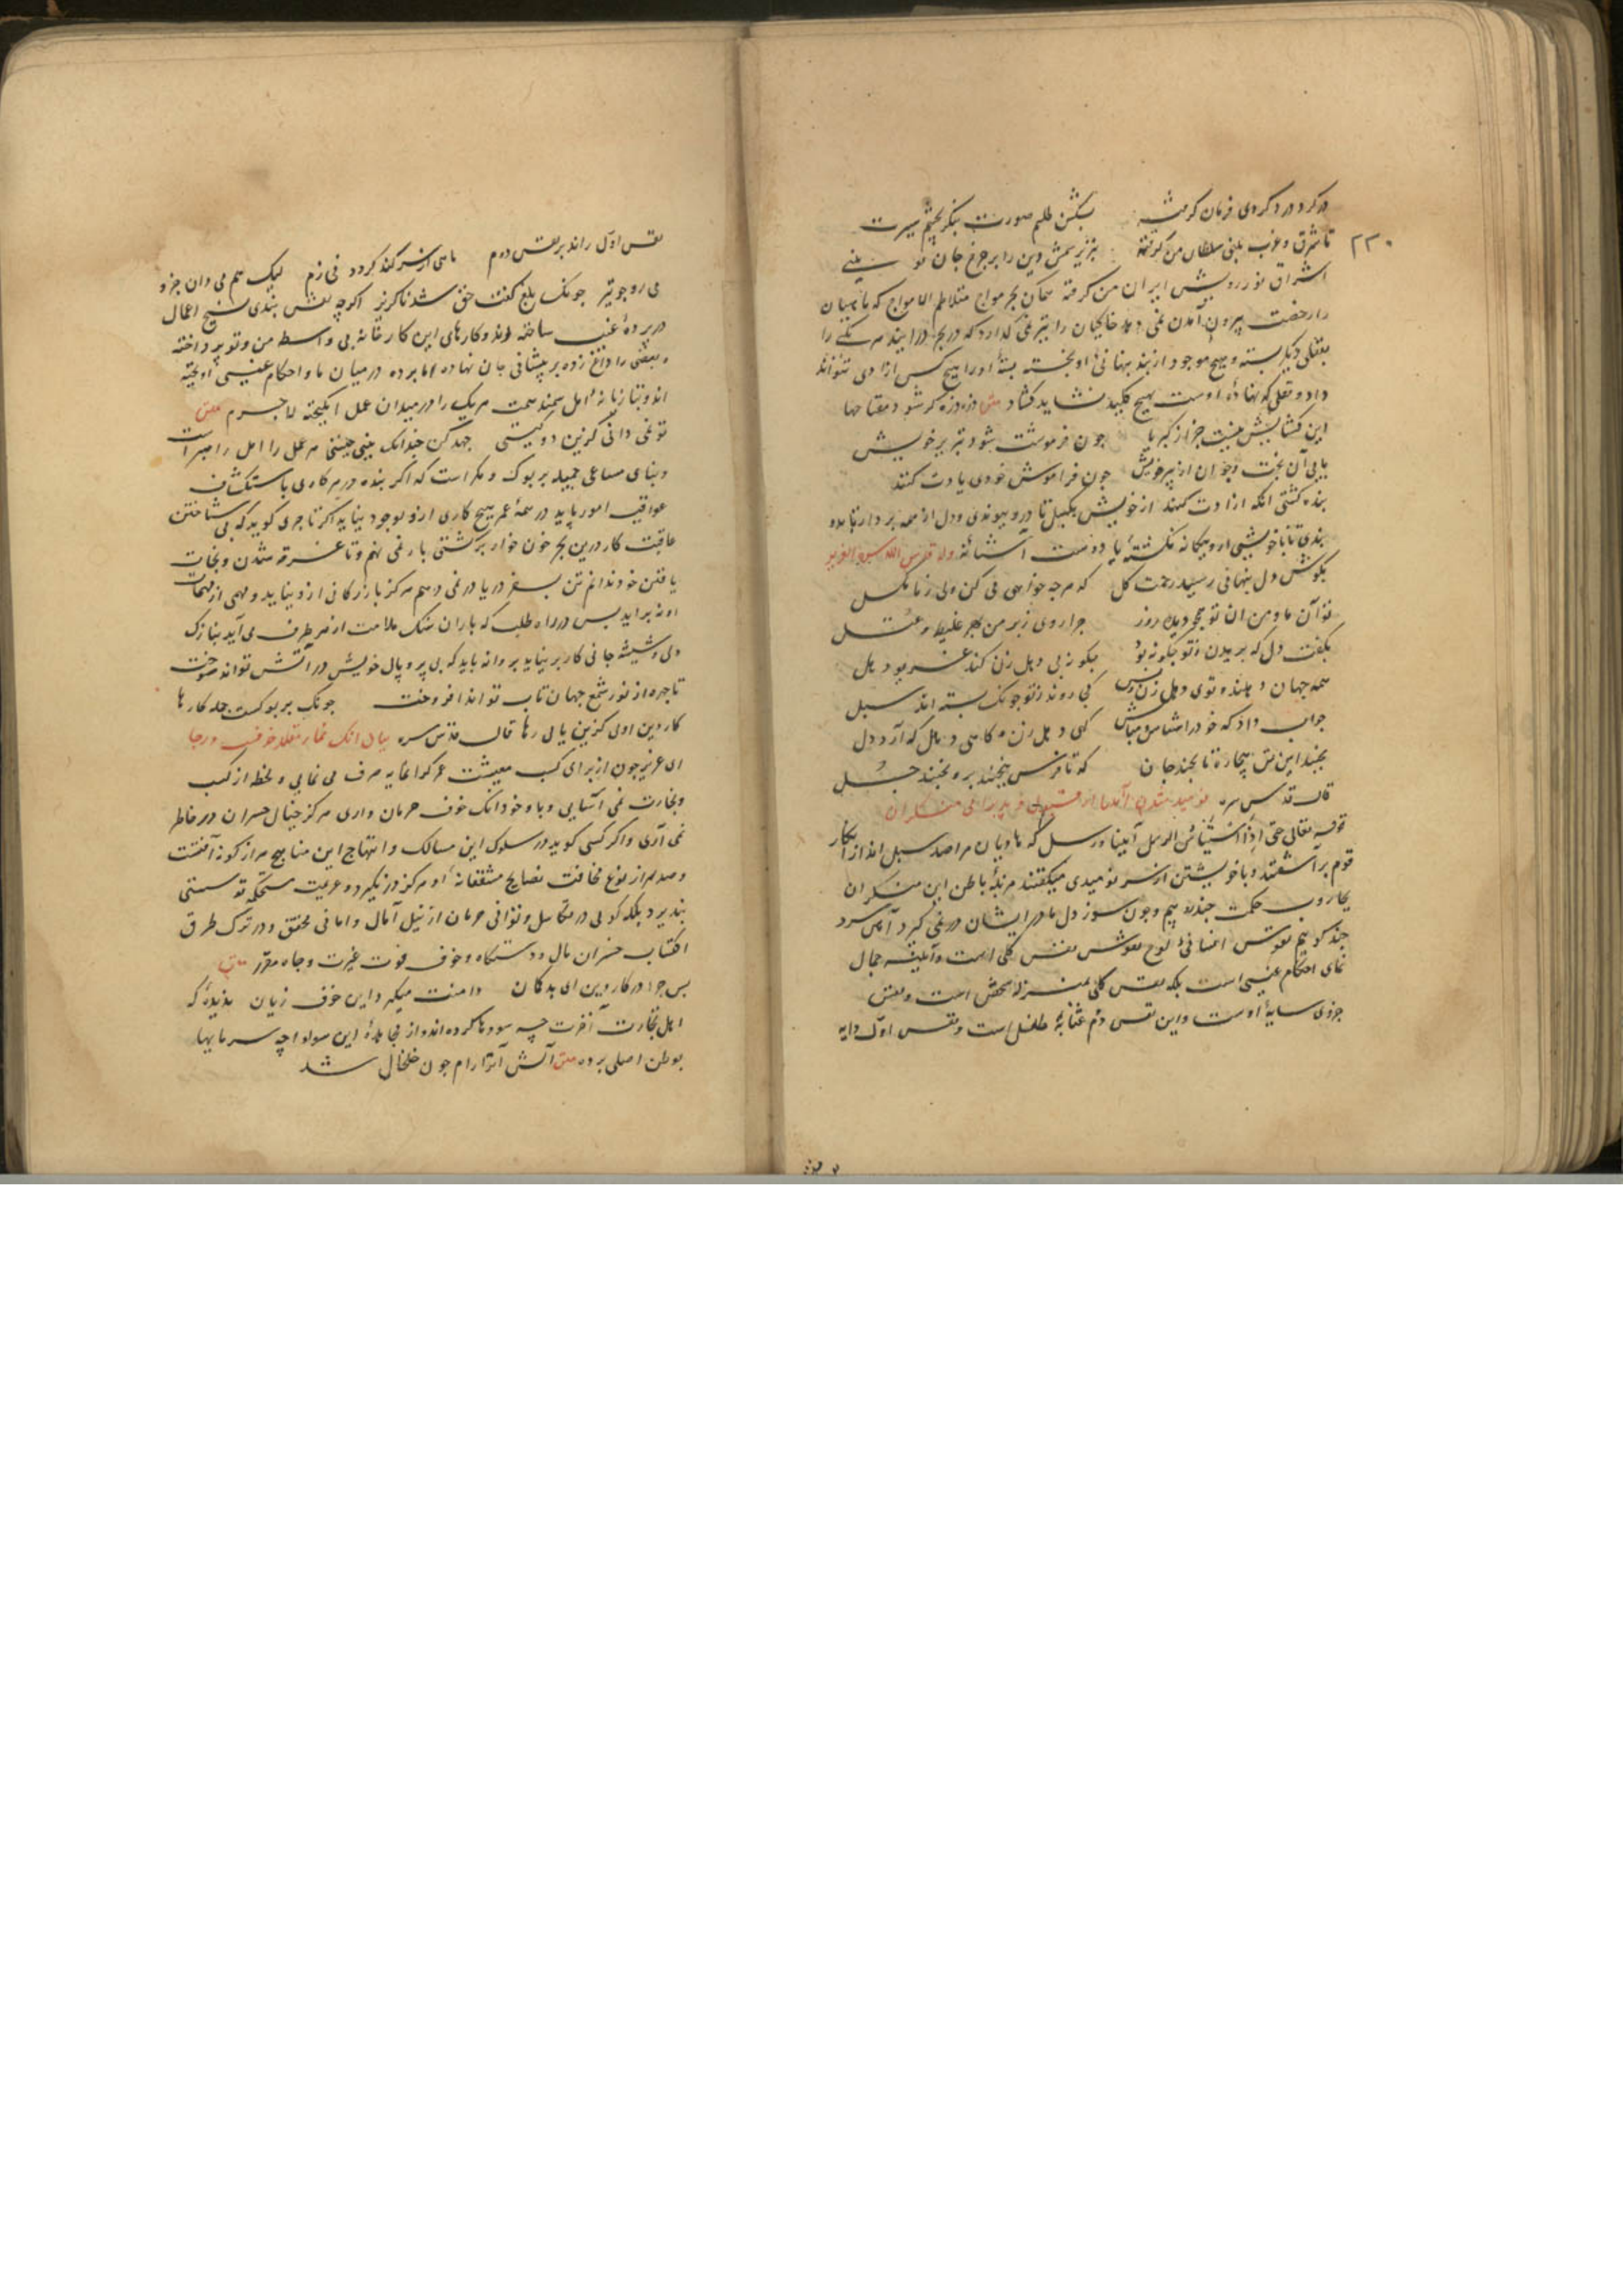 در کرد در د کردی فرمان کرمت بشکن طلسم صورت بنکر بچشم سیرت
۲۲۰
تا شرق و غرب بینی سلطان من کرفته تبریز شمس دین را بر چرخ جان تو بینی
اشراق نور رویش ایران من کرفته همان بحر مواج متلاطم الامواج که ماهیان
را رخصت بیرون آمدن نمی دهد خاکیان را نیز نمی کذارد که در بحر در آیند هر یکی را
بقفلی دیکر بسته و هیچ موجود از بند پنهانی او نجسته بستهٔ او را هیچ کس ازادی نتواند
داد و قفلی که نهادهٔ اوست بهیچ کلید نشاید کشاد ذره ذره کر شود مفتاحها
این کشایش نیست جز از کبریا چون فراموشت شود تدبیر خویش
یابی آن بخت جوان از پیر خویش چون فراموش خودی یادت کنند
بنده کشتی انکه ازادت کنند از خویش بکسل تا درو پیوندی و دل از همه بردار تا بدو
بندی تا با خویشی ازو بیکانه نکشتهٔ با دوست آشنا نهٔ وله قدس الله سره العزیز
بکوش دل پنهانی رسید رحمت کل که هر چه خواهی می کن ولی ز ما مکسل
تو آن ما و من آن تو همچو دیده و روز چرا روی ز بر من بهر غلیظ و عتل
بکفت دل که بریدن ز تو چکونه بود چکونه بی دهل زن کند غریو دهل
همه جهان دهلند و توی دهل زن و بس کجا روند ز تو چونک بسته اند سبل
جواب داد که خود را دهل شناس و مباش کهی دهل زن و کاهی دهل که آرد ذل
بجنبد این تن بیچاره تا بجنبد جان که تا فرس بنجنبد برو نجنبد جل
قال قدس سره نومید شدن انبیا از قبول و پذیرای منکران
قوله تعالی حتی اذا استیئاس الرسل انبیا و رسل که هادیان مراصد سبل اند از انکار
قوم بر آشفتند و با خویشتن از سر نومیدی میکفتند مرتبهٔ باطن این منکران
بجاروب حکمت چند روبیم و چون سوز دل ما در ایشان در نمی کیرد آهن سرد
چند کوبیم نقوش افنانی لوح نقوش نفس کلی است و آیینه جمال
نمای احکام غیبی است بلکه نفس کلی بمنزلهٔ شخص است و نفس
جزوی سایهٔ اوست و این نفس دوم بمثابهٔ طفل است و نفس اول دایه
نفس اول راند بر نفس دوم ماهی از سر کنده کردد نی ز دم لیک هم می دان و خر
می ران چو تیر چونک بلغ کفت حق شد ناکزیر اکرچه نقش بندی نسیج اعمال
در پردهٔ غیب ساخته اند و کارهای این کارخانه بی واسطه من و تو پرداخته
و بعضی را داغ زده بر پیشانی جان نهاده اما پرده در میان ما و احکام غیبی آویخته
اند و بتازیانهٔ امل سمند همت هر یک را در میدان عمل انکیخته لاجرم
تو نمی دانی کزین دو کیستی جهد کن چندانک بینی چیستی هر عمل را امل راهبر است
و بنای مساعی جمیله بر بوک و مکر است که اکر بنده در هر کاری باستکشاف
عواقب امور پاید در همهٔ عمر هیچ کاری ازو بوجود نیاید اکر تاجری کوید که بی شناختن
عاقبت کار درین بحر خون خوار بر کشتی بار نمی نهم و تا غرقه شدن و نجات
یافتن خود ندانم تن بسفر دریا در نمی دهم هرکز بازرکانی ازو نیاید و مهمی از مهمات
او نه براید پس در راه طلب که باران سنک ملامت از هر طرف می آید بنازک
دلی و شیشه جانی کار بر نیاید پروانه باید که بی پر و بال خویش در آتش تواند سوخت
تا چهره از نور شمع جهان تاب تواند افروخت چونک بر بوکست جمله کارها
کار دین اولی کزین یابی رها قال قدس سره بیان انک ایمان مقلد خوفست و رجا
ای عزیز چون از برای کسب معیشت عمر کرانمایه صرف می نمایی و لحظه از کسب
و تجارت نمی آسایی و با وجود انک خوف حرمان داری هرکز خیال خسران در خاطر
نمی آری و اکر کسی کوید در سلوک این مسالک و انتهاج این مناهج هزار کونه آفتست
و صد هزار نوع مخافت نصایح مشفقانهٔ او هرکز در نکیرد و عزیمت مستحکم تو سستی
نپذیرد بلکه کویی در تکاسل و توانی حرمان از نیل آمال و امانی محقق و در ترک طرق
اکتساب خسران مال و دستکاه و خوف فوت عزت و جاه مقرر
پس چرا در کار دین ای بدکمان دامنت میکیرد این خوف زیان ندیدهٔ که
اهل تجارت آخرت چه سودها کرده اند و از فایدهٔ این سودا چه سرمایها
بوطن اصلی برده آتش آنرا رام چون خلخال شد